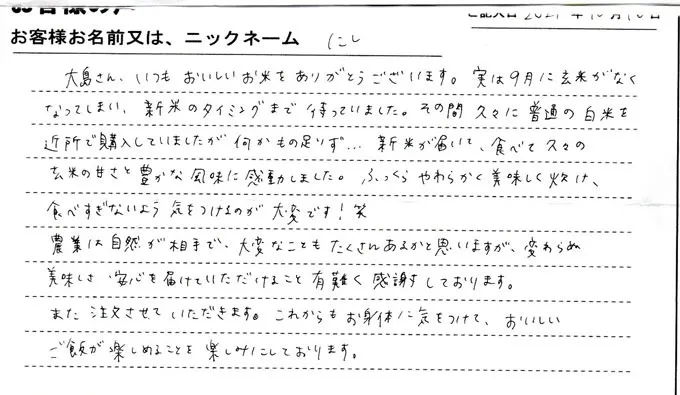 お客様の声
ご記入日 2021 年 10 月 10 日
お客様お名前又は、ニックネーム にし
大島さん、いつもおいしいお米をありがとうございます。実は9月に玄米がなく
なってしまい、新米のタイミングまで待っていました。その間久々に普通の白米を
近所で購入していましたが何かもの足りず… 新米が届いて、食べて久々の
玄米の甘さと豊かな風味に感動しました。ふっくらやわらかく美味しく炊け、
食べすぎないよう気をつけるのが大変です！笑
農業は自然が相手で、大変なこともたくさんあるかと思いますが、変わらぬ
美味しさ 安心を届けていただけること有難く感謝すしております。
また注文させていただきます。これからもお身体に気をつけて、おいしい
ご飯が楽しめることを楽しみにしております。